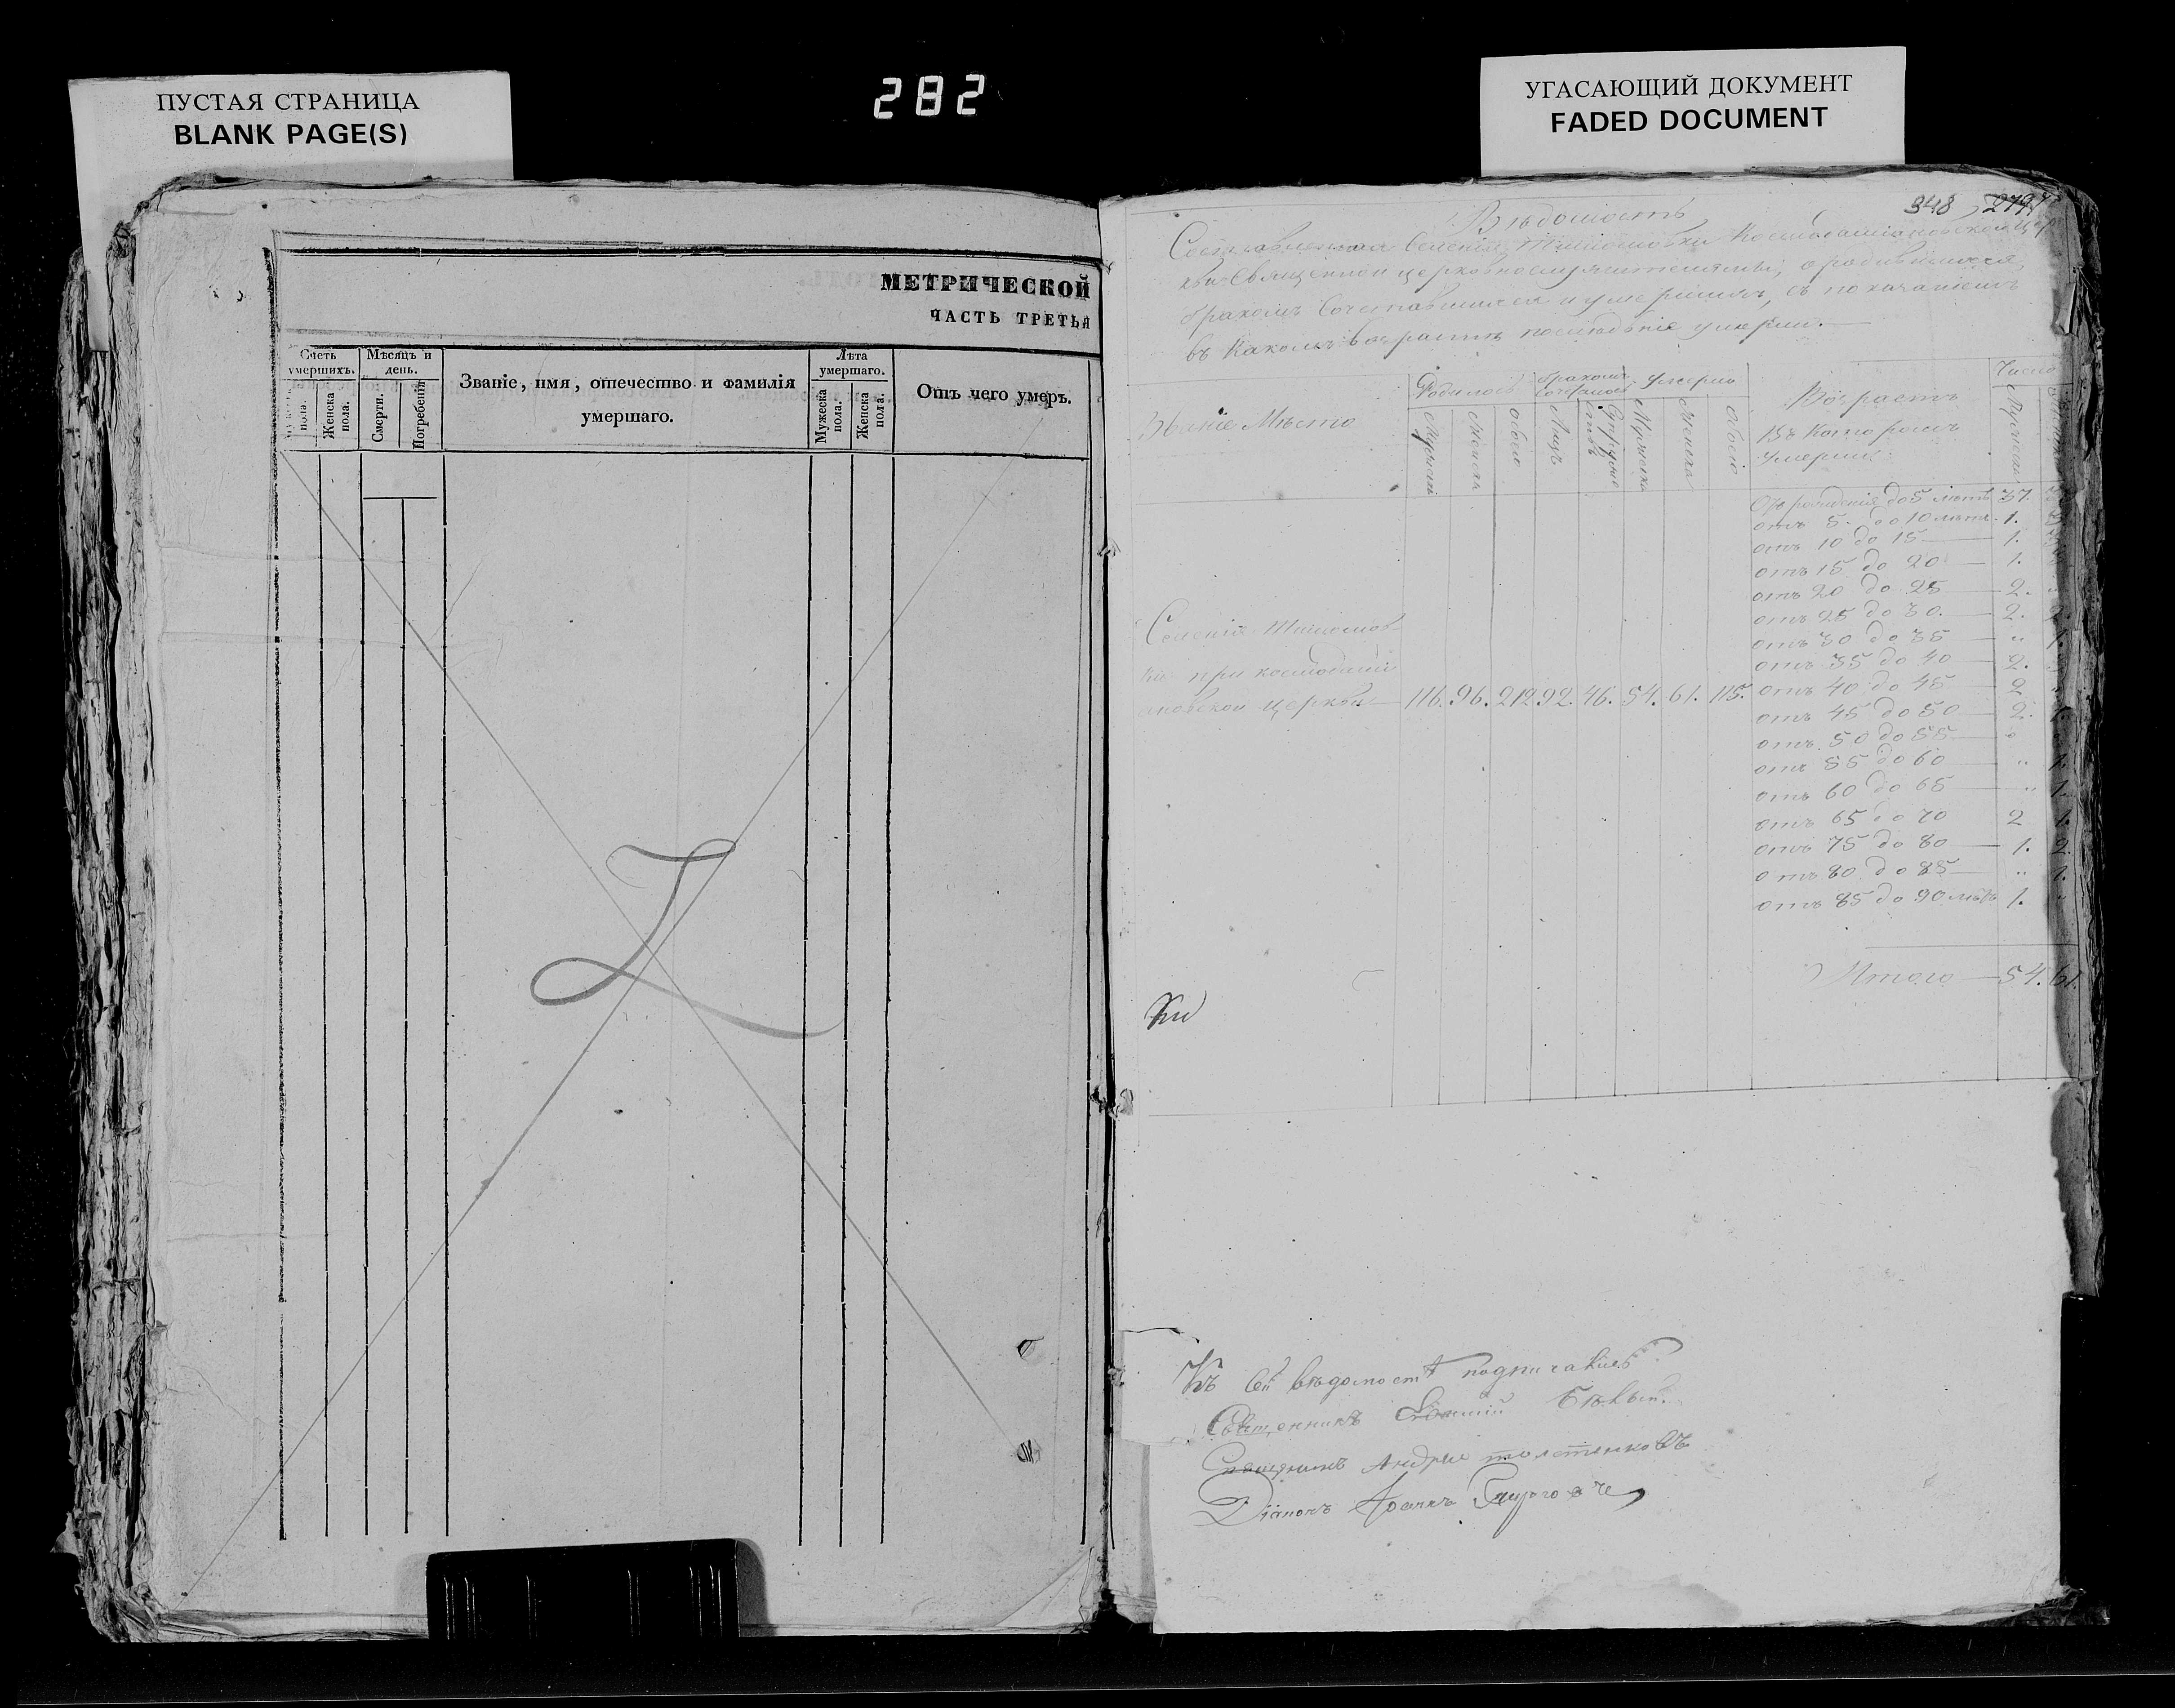 ПУСТАЯ СТРАНИЦА
BLANK PAGE(S)
282
УГАСАЮЩИЙ ДОКУМЕНТ
FADED DOCUMENT
МЕТРИЧЕСКОЙ
ЧАСТЬ ТРЕТЬЯ
Счетъ умершихъ.
Мѣсяцъ и день.
Званіе, имя, отечество и фамилія умершаго.
Лѣта умершаго.
Отъ чего умеръ.
пола.
Женска пола.
Смерти.
Погребенія
Мужеска пола.
Женска пола.
348
Вѣдомость
Составленная Селенія
Священно церковнослужителями, о родившихся,
бракомъ Сочетавшихся и умершихъ, съ показаніемъ
въ какомъ возрастѣ послѣдніе умерли.
Званіе Мѣста
Родилось
бракомъ
Умерло
Возрастъ
Въ которомъ
умерли
Число
обоего
Лицъ
обоего
Отъ рожденія до 5 лѣтъ 37.
отъ 5 до 10 лѣтъ 1.
отъ 10 до 15 1.
отъ 15 до 20 1.
отъ 20 до 25 2.
отъ 25 до 30. 2. 2.
отъ 30 до 35 " 1.
отъ 35 до 40 2.
отъ 40 до 45 2
отъ 45 до 50 2. 1.
отъ 50 до 55
отъ 55 до 60 " 1.
отъ 60 до 65 " 1.
отъ 65 до 70 2 1.
отъ 75 до 80 1. 2.
отъ 80 до 85 " 1.
отъ 85 до 90 лѣтъ 1. "
Селенія
ки при космодамі
ановской церкви 116. 96. 212 92. 46. 54. 61. 115.
Итого 54. 61.
Къ сей вѣдомости
Священникъ
Священникъ Андрей
Діаконъ Іоаннъ